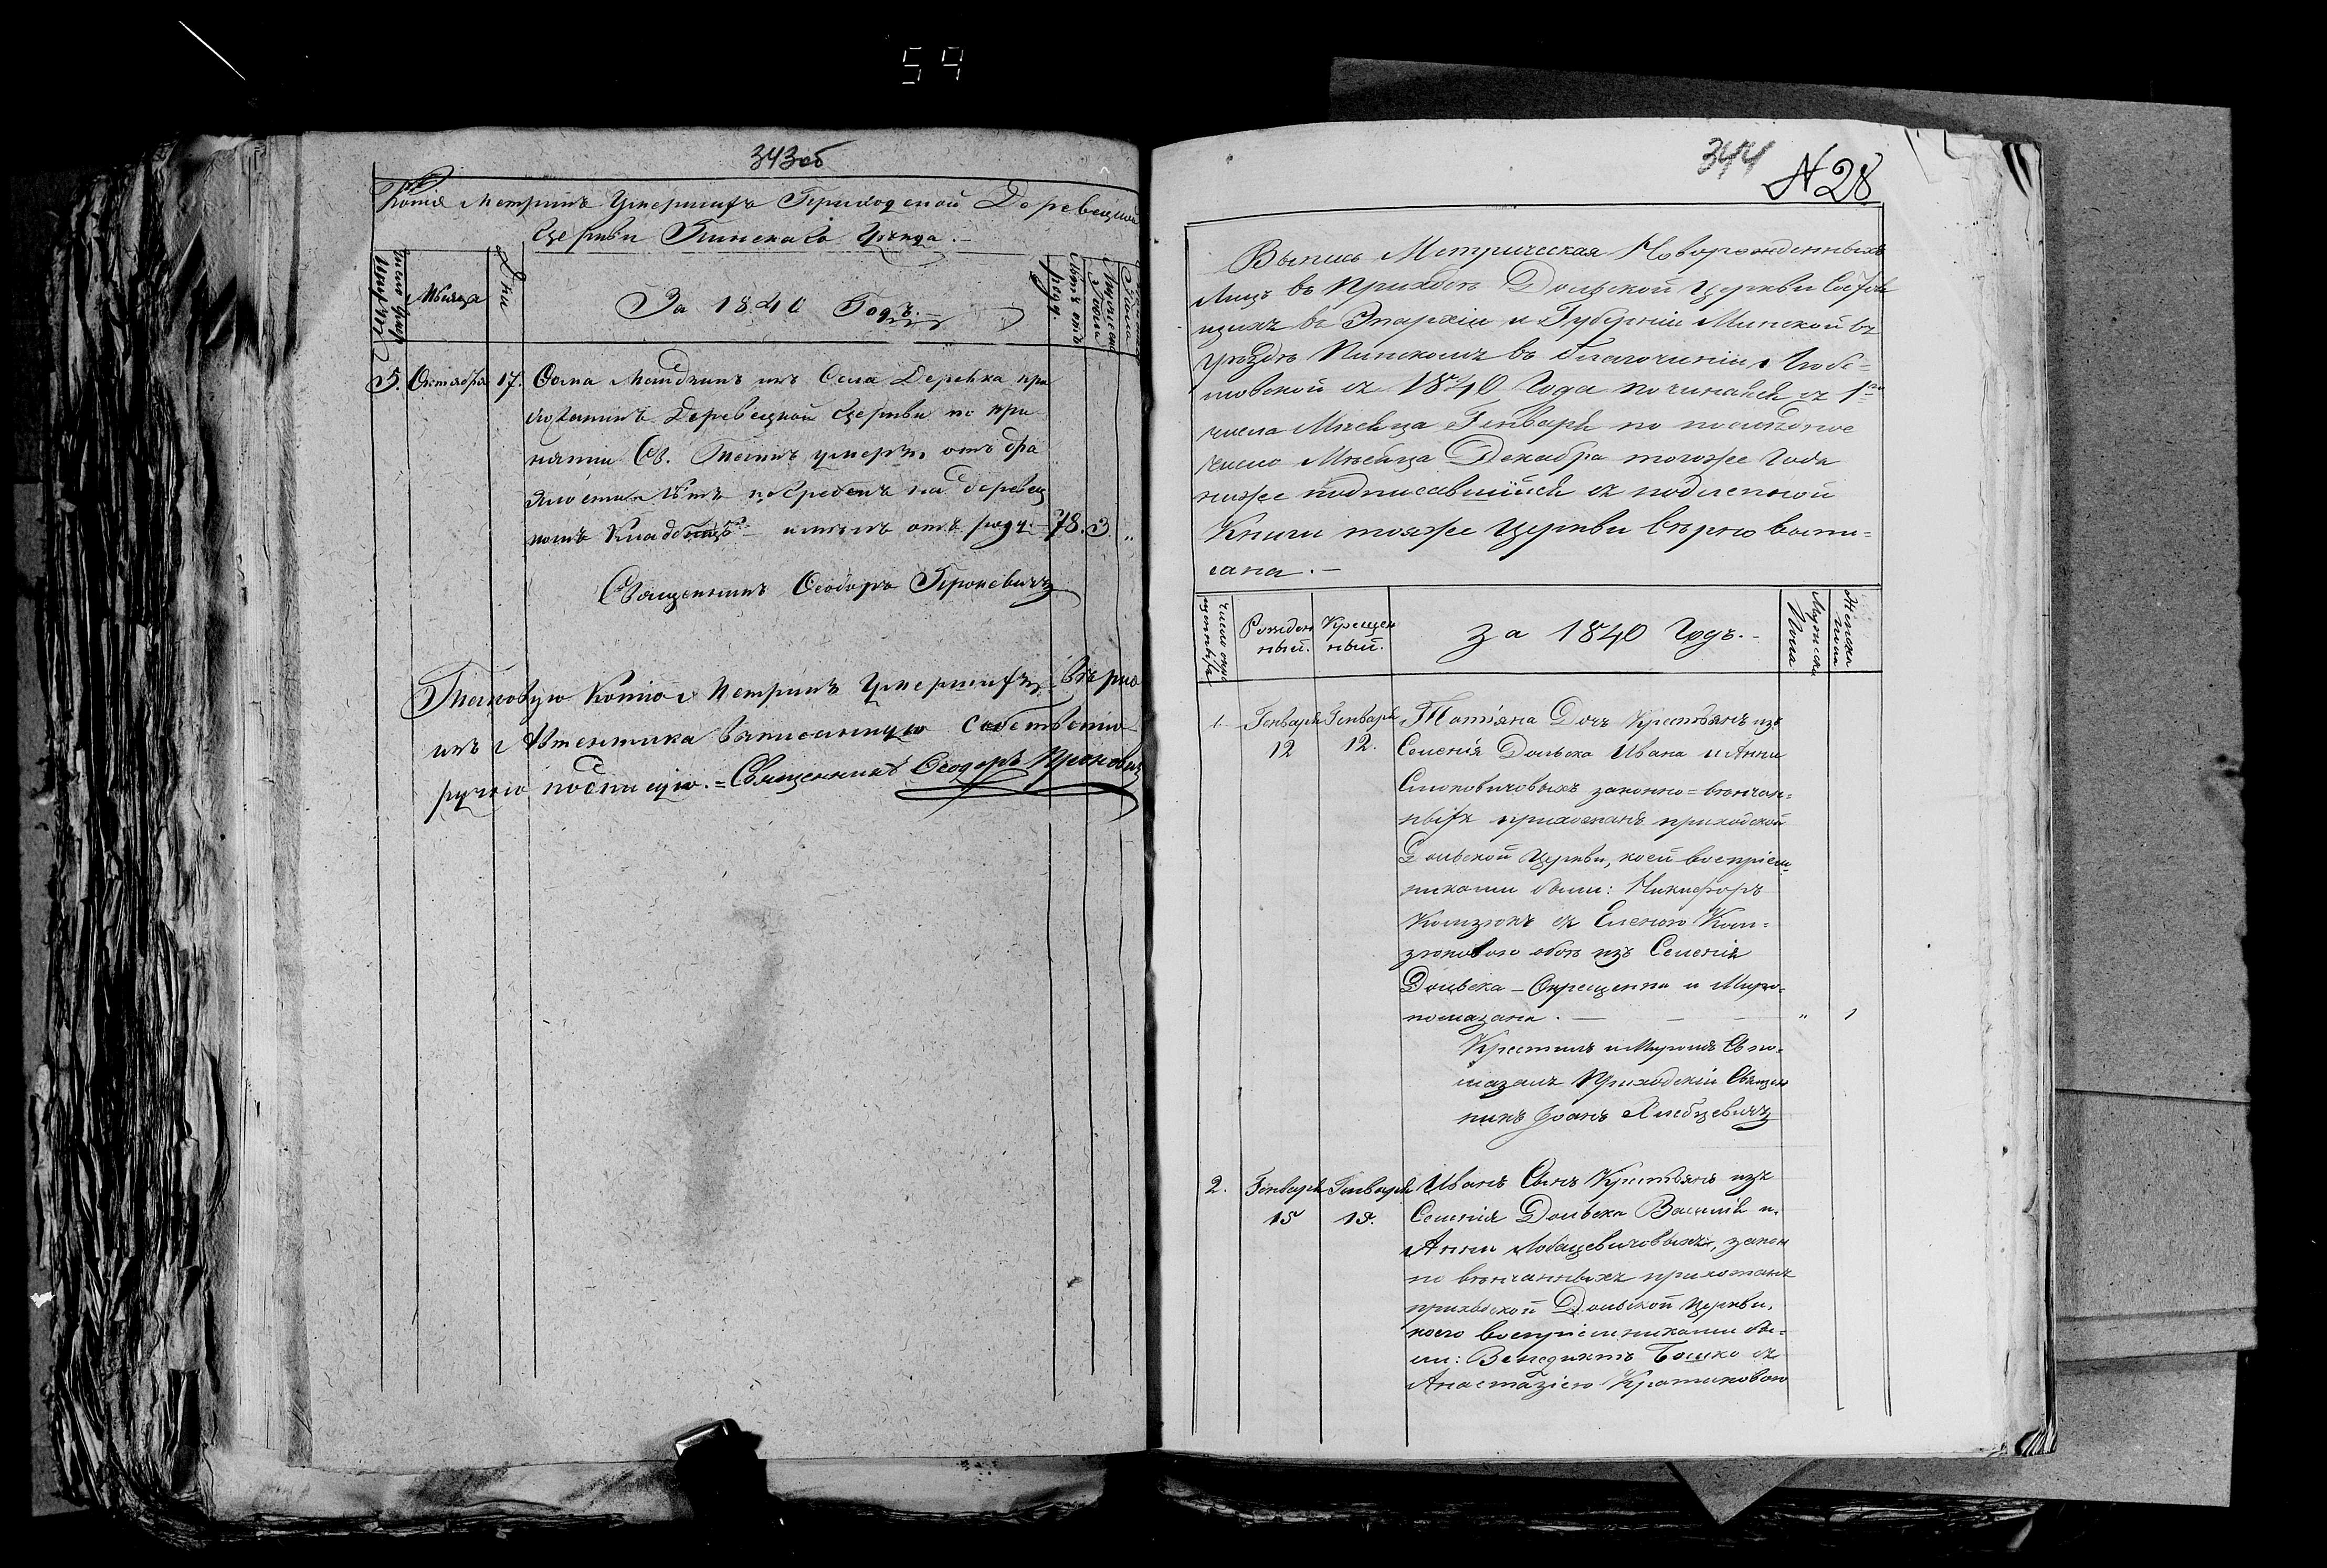 59
343об
Копія Метрикъ Умершихъ Приходской Деревецкой
Церкви Пинскаго Уѣзда.
Число умершихъ
Мѣсяца
Дни
За 1840 Годъ.
роду
Мужеска
Пола
5. Октября 17. Фома из Села Деревка при
хожанинъ Деревецкой Церкви по при
нятіи Св. Таинъ умеръ отъ дря
погребенъ на Деревец
комъ Кладбищѣ имѣлъ отъ роду 78. 3. „
Священникъ Ѳеодоръ Проневичъ
Таковую Копію Метрикъ Умершихъ вѣрно
изъ Автентика выписанную собственно
ручно подписую. = Священникъ Ѳеодоръ Проневичъ
344 N 28
Выпись Метрическая Новорожденныхъ
Лицъ въ Приходѣ Дольской Церкви Состоя
щихъ въ Эпархіи и Губерніи Минской въ
уѣздѣ Пинскомъ въ благочиніи Любе=
шовской съ 1840 Года починаясь съ 1го
числа Мѣсяца Генваря по послѣднее
число Мѣсяца Декабря тогоже Года
ниже подписавшійся съ подленной
Книги тояже Церкви вѣрно выпи=
сана. —
Рожден
ный.
Крещен
ный.
за 1840 Годъ. -
Мужеска
Пола
Женска
пола
1. Генваря Генваря Татіяна Дочь Крестьянъ изъ
12 12. Селенія Дольска Ивана и Анны
законно=вѣнчан=
ныхъ прихожанъ приходской
Дольской Церкви, коей воспріем
никами были: Никифоръ
Комзюкъ съ Еленою Ком=
зюковою обоя изъ Селенія
Дольска – Окрещенна и Миро=
помазана. — — — „ 1
Крестилъ и Миромъ Св по=
мазалъ Приходскій Священ
никъ Іоанъ Хлебцевичъ
2. Генваря Генваря Иванъ Сынъ Крестьянъ изъ
15 15. Селенія Дольска Василія и
Анны Лобацевичовыхъ, закон
но вѣнчанныхъ прихожанъ
приходской Дольской Церкви,
коего воспріемниками бы=
ли: Венедиктъ Бошко съ
Анастазіею